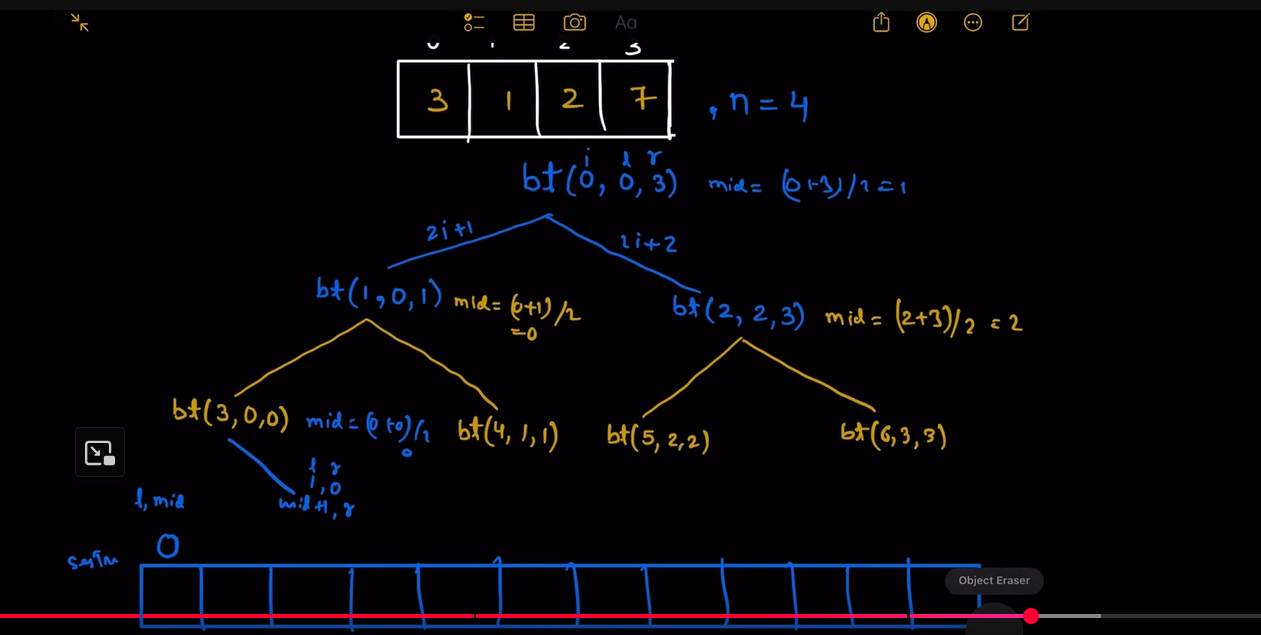 Aa
0 1 2 3
3 1 2 7 , n = 4
i l r
bt(0, 0, 3) mid = (0+3)/2 = 1
2i+1 2i+2
bt(1, 0, 1) mid = (0+1)/2 = 0
bt(2, 2, 3) mid = (2+3)/2 = 2
bt(3, 0, 0) mid = (0+0)/2 0
bt(4, 1, 1) bt(5, 2, 2) bt(6, 3, 3)
l r
1, 0
l, mid mid+1, r
0
Object Eraser